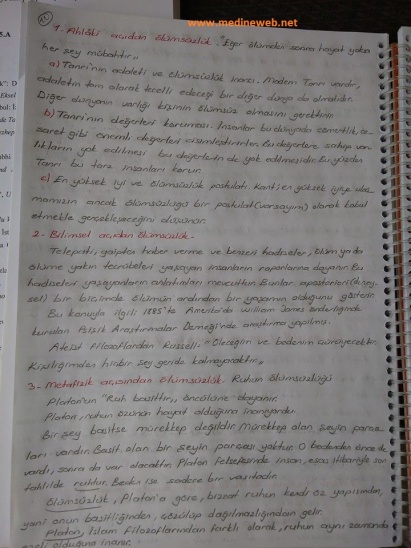 www.medineweb.net
1. Ahlâki açıdan ölümsüzlük. "Eğer ölümden sonra hayat yoksa
her şey mübahtır,,
a) Tanrı'nın adaleti ve ölümsüzlük inancı. Madem Tanrı vardır,
adaletin tam olarak tecelli edeceği bir diğer dünya da olmalıdır.
Diğer dünyanın varlığı kişinin ölümsüz olmasını gerektirir.
b) Tanrı'nın değerleri koruması. İnsanlar bu dünyada cömertlik, ce-
saret gibi önemli değerleri cisimleştirirler. Bu değerlere sahip var-
lıkların yok edilmesi bu değerlerin de yok edilmesidir. Bu yüzden
Tanrı bu tarz insanları korur.
c) En yüksek iyi ve ölümsüzlük postulatı. Kant en yüksek iyiye ulaş-
mamızın ancak ölümsüzlüğü bir postulat (varsayım) olarak kabul
etmekle gerçekleşeceğini düşünür.
2- Bilimsel açıdan ölümsüzlük.
Telepati, gaipten haber verme ve benzeri hadiseler, ölüm ya da
ölüme yakın tecrübeleri yaşayan insanların raporlarına dayanır. Bu
hadiseleri yaşayanların anlatıları mevcuttur. Bunlar aposteriori
sel) bir biçimde ölümün ardından bir yaşamın olduğunu gösterir.
Bu konuyla ilgili 1885'te Amerika'da William James önderliğinde
kurulan Psişik Araştırmalar Derneği'nde araştırma yapılmış.
Ateist filozoflardan Russell: "Öleceğim ve bedenim çürüyecektir.
Kişiliğimden hiçbir şey geride kalmayacaktır,,
3- Metafizik açısından ölümsüzlük. Ruhun ölümsüzlüğü
Platon'un "Ruh basittir,, öncülüne dayanır.
Platon, ruhun özünün hayat olduğuna inanıyordu.
Bir şey basitse mürekkep değildir. Mürekkep olan şeyin parça-
ları vardır. Basit olan bir şeyin parçası yoktur. O bedenden önce de
vardı, sonra da var olacaktır. Platon felsefesinde insan, esas itibariyle son
tahlilde ruhtur. Beden ise sadece bir vasıtadır.
Ölümsüzlük, Platon'a göre, bizzat ruhun kendi öz yapısından,
yani onun basitliğinden, çözülüp dağılmazlığından gelir.
Platon, İslam filozoflarından farklı olarak, ruhun aynı zamanda
ezeli olduğuna inanır.